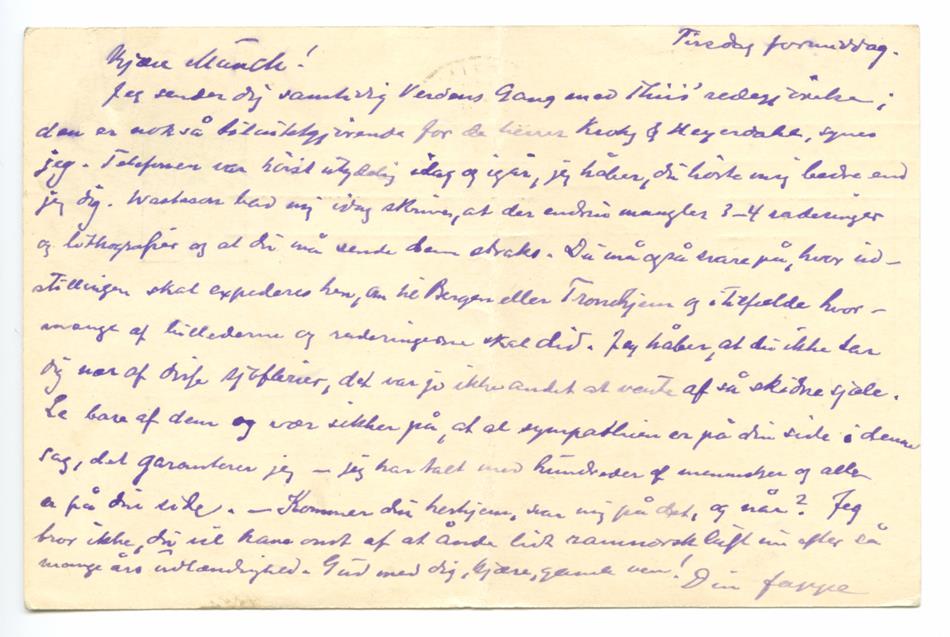 Tirsdag formiddag.
Kjære Munch!
Jeg sender dig samtidig Verdens Gang med Thiis' redegjörelse;
den er nokså tilintetgjörende for de herrer Krohg & Heyerdahl, synes
jeg. Telefonen var höist utydelig idag og igår, jeg håber, du hörte mig bedre end
jeg dig. bad mig idag skrive, at der endnu mangler 3-4 raderinger
og lithografier og at du må sende dem straks. Du må også svare på, hvor ud-
stillingen skal expederes hen, om til Bergen eller Trondhjem og i tilfælde hvor-
mange af billederne og raderingerne skal did. Jeg håber, at du ikke tar
dig nær af disse sjöflerier, det var jo ikke andet at vente af så skidne sjæle.
Le bare af dem og vær sikker på, at al sympathien er på din side i denne
sag, det garanterer jeg – jeg har talt med hundreder af mennesker og alle
er på din side. – Kommer du herhjem, svar mig på det, og når? Jeg
tror ikke, du vil have ondt af at ånde lidt ramnorsk luft nu efter så
mange års udlændighed. Gud med dig, kjære, gamle ven! Din Jappe